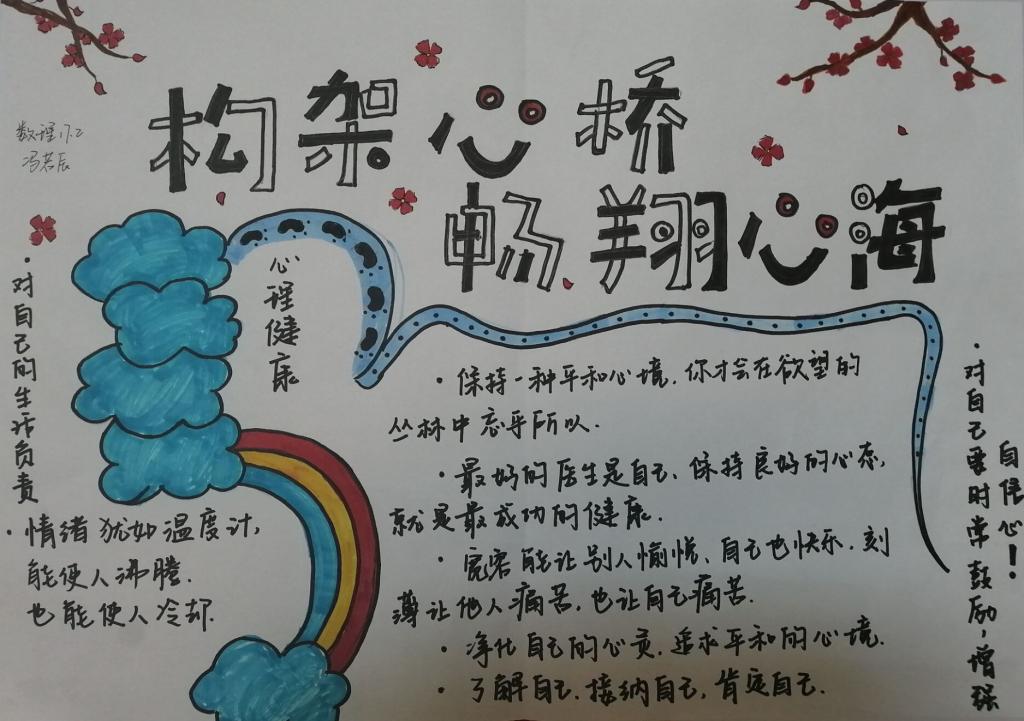 构架心桥
畅翔心海
数理17.2
冯若辰
·对自己的生活负责
心理健康
·情绪犹如温度计,
能使人沸腾.
也能使人冷却.
·保持一种平和心境.你才会在欲望的
丛林中忘乎所以.
·最好的医生是自己、保持良好的心态,
就是最成功的健康.
·宽容能让别人愉悦、自己也快乐.刻
薄让他人痛苦,也让自己痛苦.
·净化自己的心灵.追求平和的心境.
·了解自己.接纳自己,肯定自己.
·对自己要时常鼓励,增强
自信心!